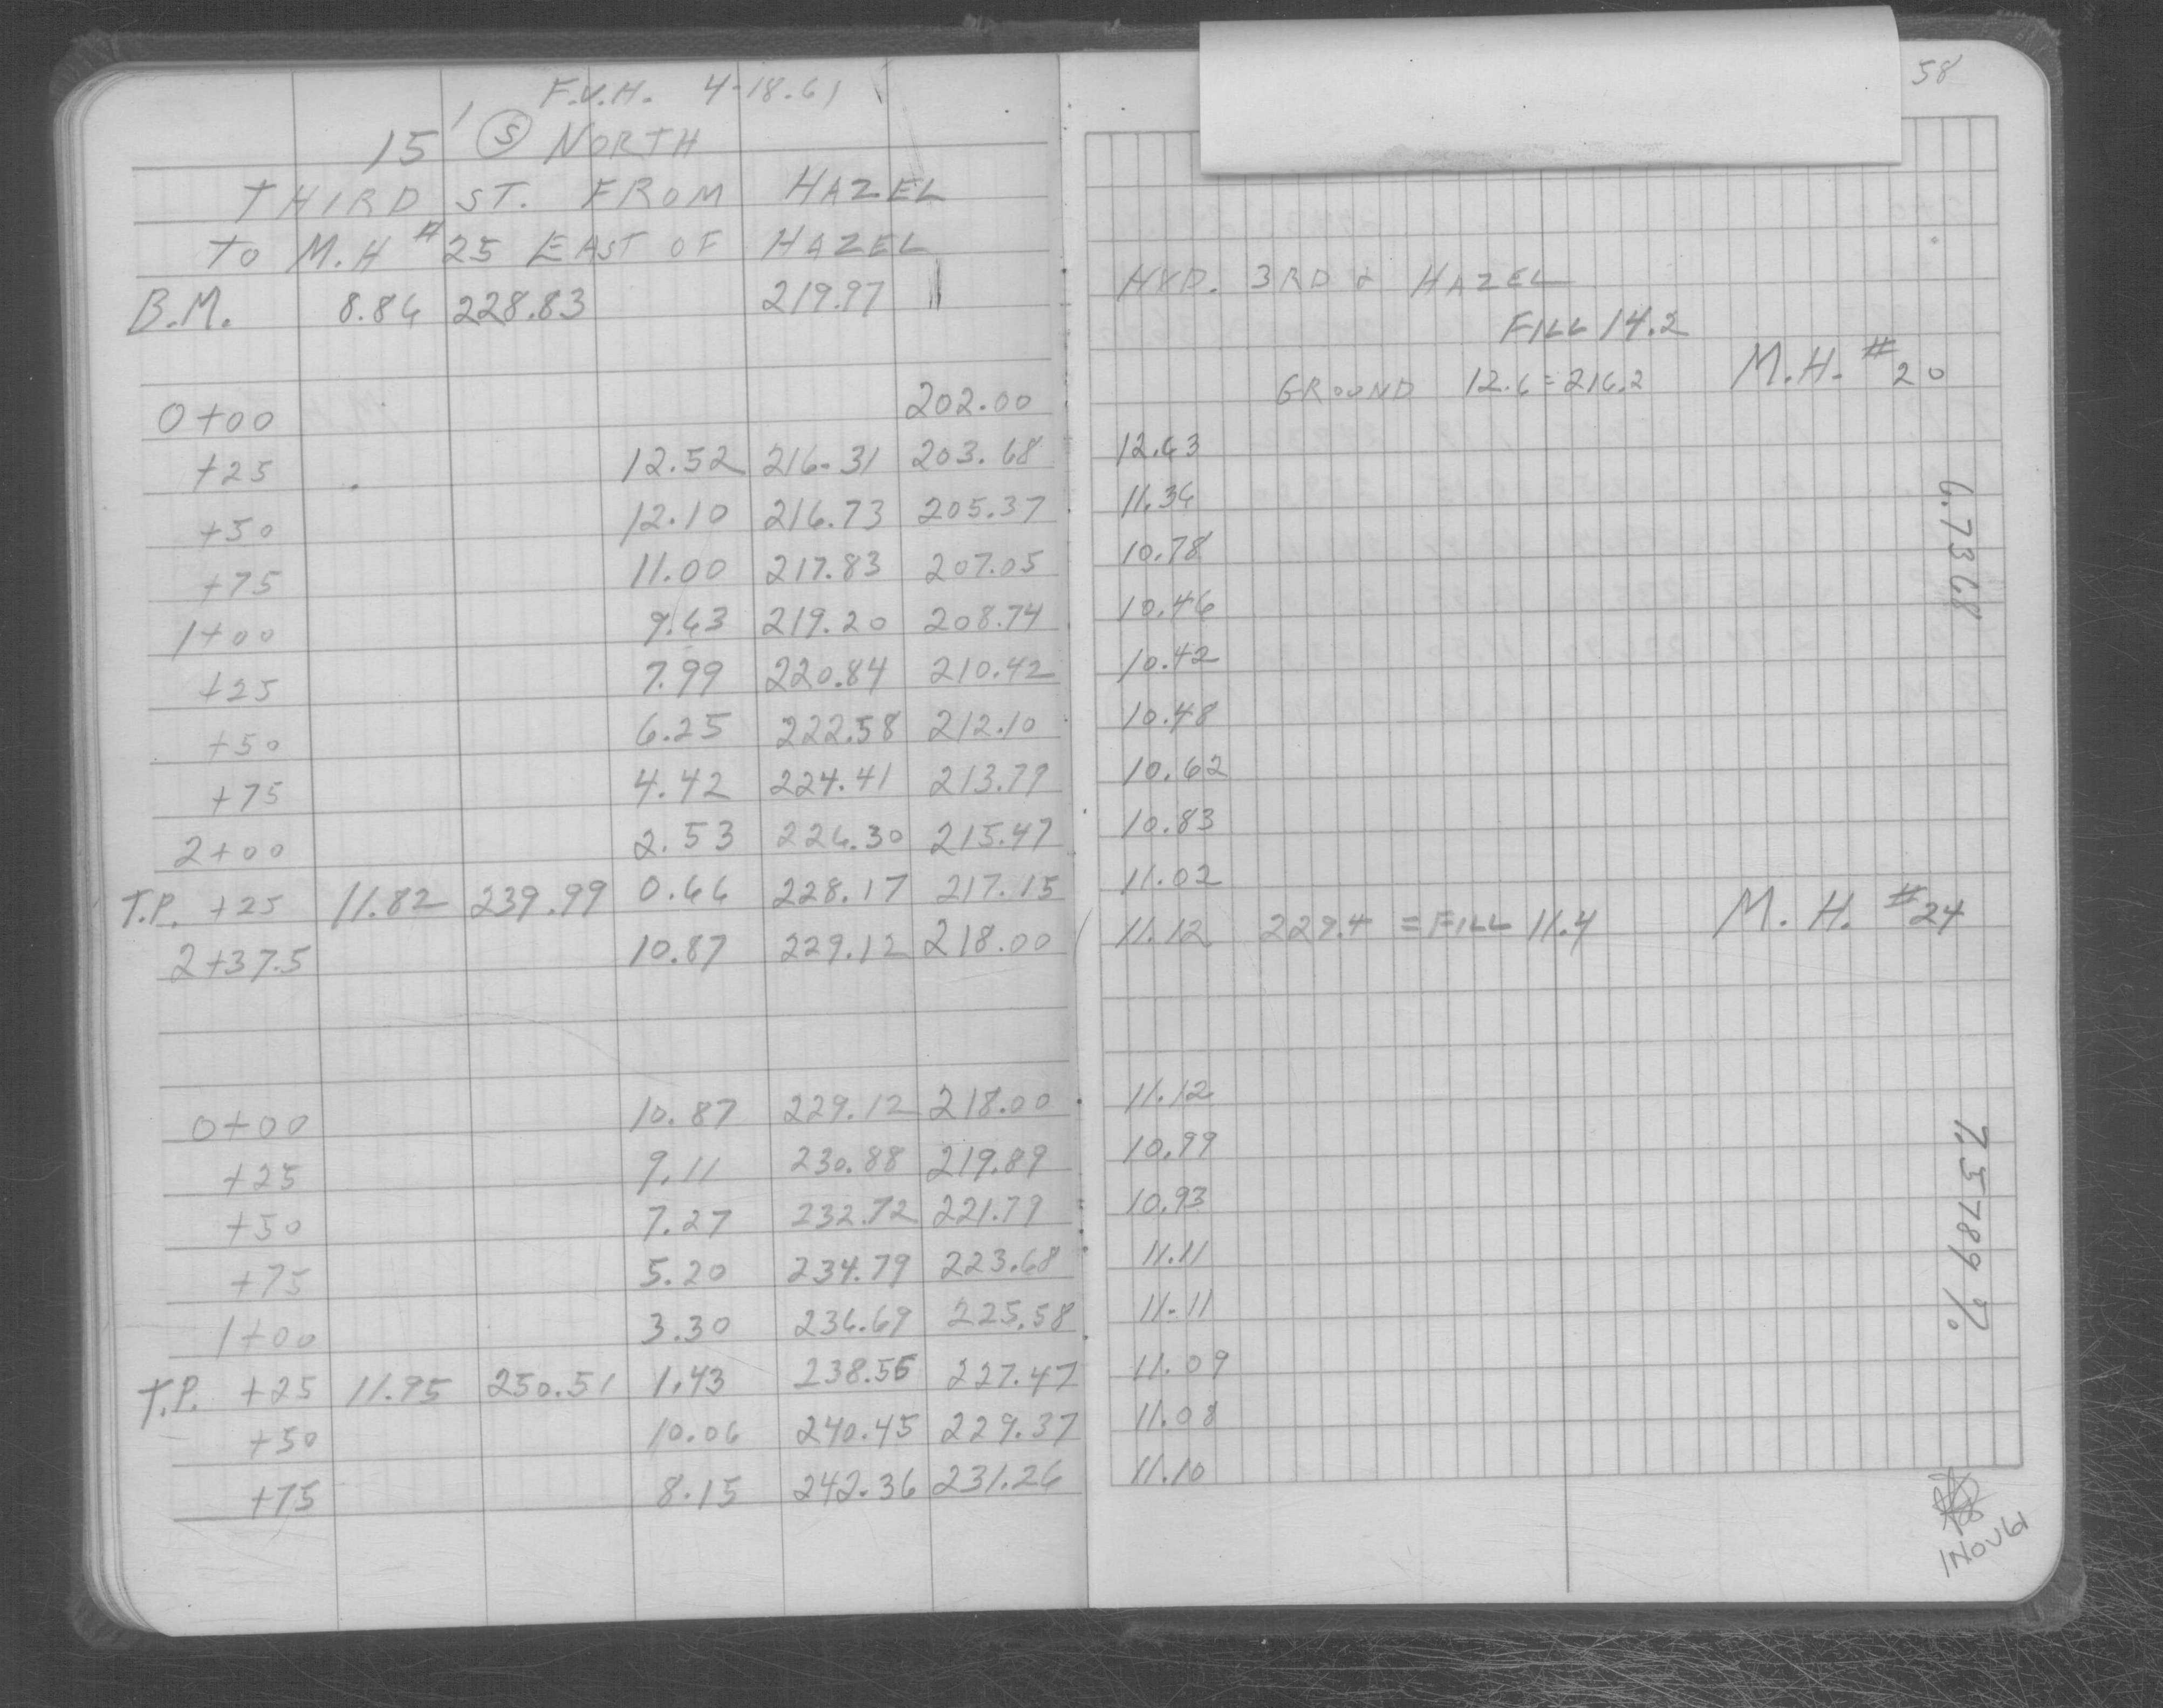 F.V.H. 4-18-61
15' Ⓢ NORTH
THIRD ST. FROM HAZEL
TO M.H #25 EAST OF HAZEL
B.M. 8.86 228.83 219.97
0+00 202.00
+25 12.52 216.31 203.68
+50 12.10 216.73 205.37
+75 11.00 217.83 207.05
1+00 9.63 219.20 208.74
+25 7.99 220.84 210.42
+50 6.25 222.58 212.10
+75 4.42 224.41 213.79
2+00 2.53 226.30 215.47
T.P. +25 11.82 239.99 0.66 228.17 217.15
2+37.5 10.87 229.12 218.00
0+00 10.87 229.12 218.00
+25 9.11 230.88 219.89
+50 7.27 232.72 221.79
+75 5.20 234.79 223.68
1+00 3.30 236.69 225.58
T.P. +25 11.95 250.51 1.43 238.56 227.47
+50 10.06 240.45 229.37
+75 8.15 242.36 231.26
58
HYD. 3RD & HAZEL
FILL 14.2
GROUND 12.6 = 216.2 M.H. #20
12.63
11.36
10.78
10.46
10.42
10.48
10.62
10.83
11.02
11.12 229.4 = FILL 11.4 M.H. #24
6.7368
11.12
10.99
10.93
11.11
11.11
11.09
11.08
11.10
7.5789 %
1NOV61